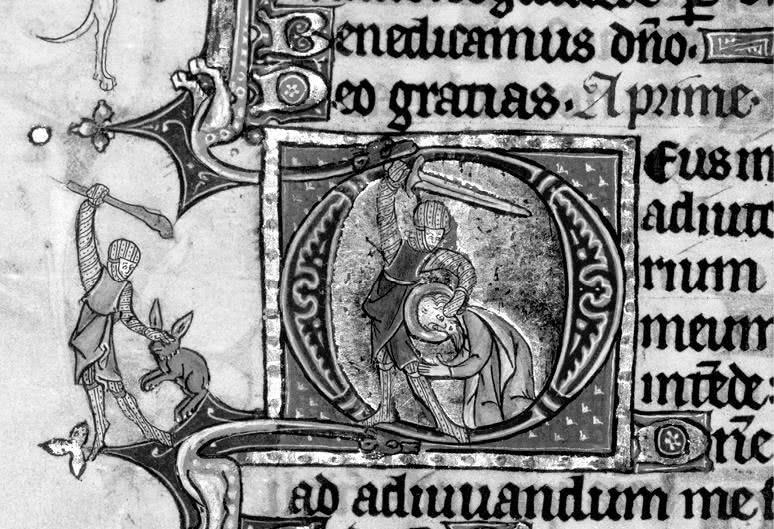 Benedicamus dño.
Deo gratias. A prime.
Deus m
adiuto
rium
meum
intẽde:
ñe
ad adiuuandum me f